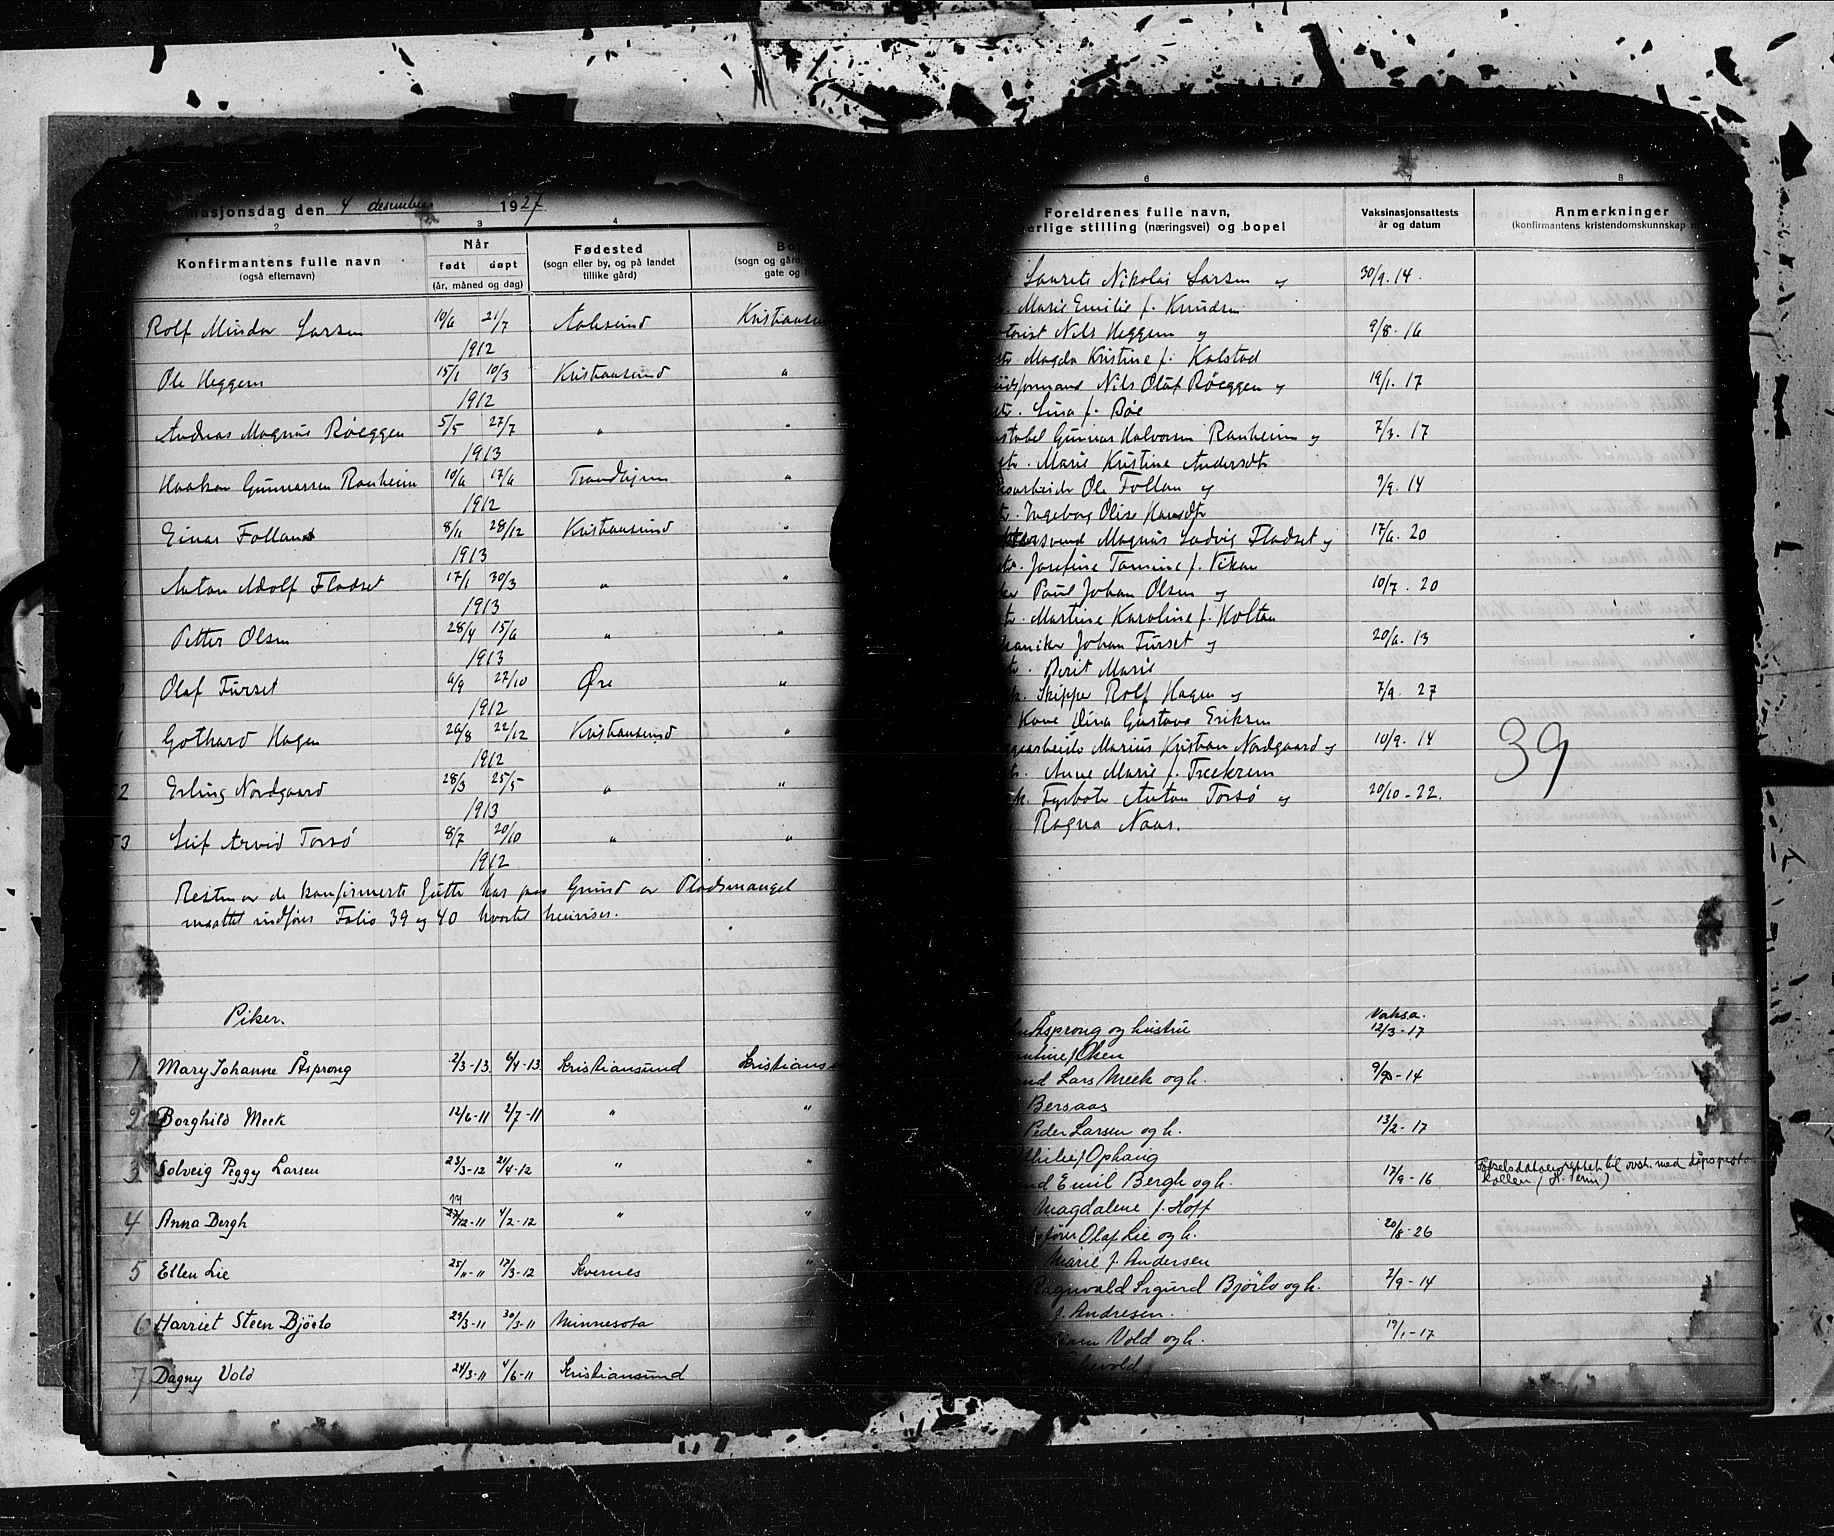 masjonsdag den 4 desember 1927
2 3 4
Konfirmantens fulle navn
(også efternavn)
Når
født døpt
(år, måned og dag)
Fødested
(sogn eller by, og på landet
tillike gård)
Bo
(sogn og gård,
gate og
Rolf Mindor Larsen 10/6 21/7 Aalesund Kristiansun
1912
Ole Heggem 15/1 10/3 Kristiansund "
1912
Andreas Magnus Røeggen 5/5 27/7 " "
1913
Haakon Gunnarsen Ranheim 10/6 17/6 Trondhjem "
1912
Einar Folland 8/11 28/12 Kristiansund "
1913
Anton Adolf Fladset 17/1 30/3 " "
1913
Petter Olsen 28/4 15/6 " "
1913
Olaf Furset 6/9 27/10 Øre "
1912
Gothard Hagen 26/8 22/12 Kristiansund "
1912
2 Erling Nordgaard 28/3 25/5 " "
1913
3 Leif Arvid Torsø 8/7 20/10 " "
1912
Resten av de konfirmerte Gutter har paa Grund av Pladsmangel
maattet indføres Folio 39 og 40 hvortil henvises.
Piker.
1 Mary Johanne Åsprong 2/3-13 6/4-13 Kristiansund Kristians
2 Borghild Meek 12/6-11 2/7-11 " "
3 Solveig Peggy Larsen 23/3-12 21/4-12 " "
4 Anna Bergh 27/12-11 4/2-12 " "
5 Ellen Lie 25/11-11 17/3-12 Kvernes "
6 Harriet Steen Bjørlo 29/3-11 30/3-11 Minnesota "
7 Dagny Vold 24/3-11 4/6-11 Kristiansund
6 7 8
Foreldrenes fulle navn,
erlige stilling (næringsvei) og bopel
Vaksinasjonsattests
år og datum
Anmerkninger
(konfirmantens kristendomskunnskap m
Laurits Nikolai Larsen og 30/9. 14.
Marie Emilie f. Knudsen
Nils Heggem og 9/8. 16
Magda Kristine f. Kalstad
formand Nils Olaf Røeggen og 19/1. 17
Lina f. Bøe
Gunnar Halvorsen Ranheim og 7/3. 17
Marie Kristine Andersdtr
arbeider Ole Follan og 9/9. 14
Ingeborg Olise Hansdtr
svend Magnus Ludvig Fladset og 17/6. 20
Josefine Tomine f. Vikan
Paul Johan Olsen og 10/7. 20
Martine Karoline f. Holten
Johan Furset og 20/6. 13
Berit Marie
Skipper Rolf Hagen og 7/9. 27
Kone Dina Gustava Eriksen
arbeider Marius Kristian Nordgaard og 10/9. 14
Anne Marie f. Treekrem
Fyrbøter Anton Torsø og 20/10-22.
Ragna Naas.
39
Vaksa.
Åsprong og hustru 12/3-17
Olsen
Lars Meek og h. 9/9-14
Bersaas
Peder Larsen og h. 13/2-17
Ophaug
Emil Bergh og h. 12/9-16
Magdalene f. Hoff
Olaf Lie og h. 20/8-26
Marie f. Andersen
Ragnvald Sigurd Bjørlo og h. 2/9-14
f. Andresen.
Vold og h. 19/1-17
Fødselsdato rettet til ovst. med dåpsproto-
kollen